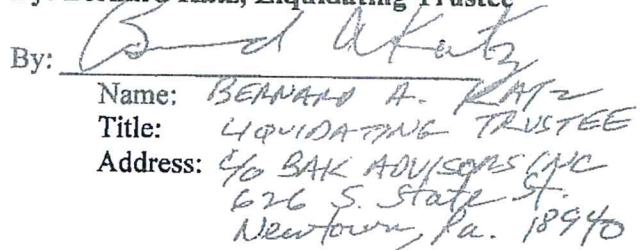 By: Bernard Katz, Liquidating Trustee
By: Bernard A Katz
Name: BERNARD A. KATZ
Title: LIQUIDATING TRUSTEE
Address: c/o BAK ADVISORS INC
626 S. State St.
Newtown, Pa. 18940